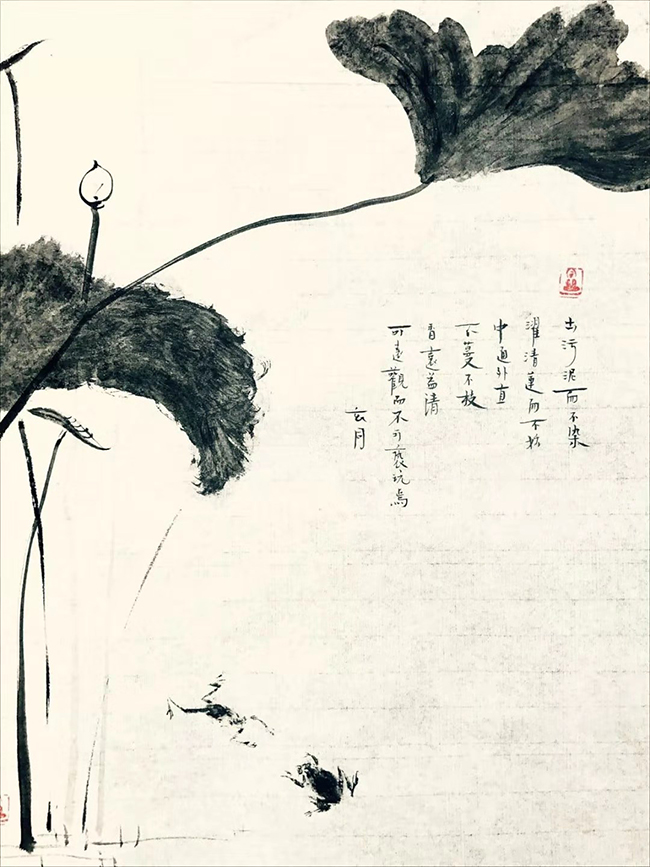 出污泥而不染
濯清蓮而不妖
中通外直
不蔓不枝
香遠益清
可遠觀而不可褻玩焉
玄月